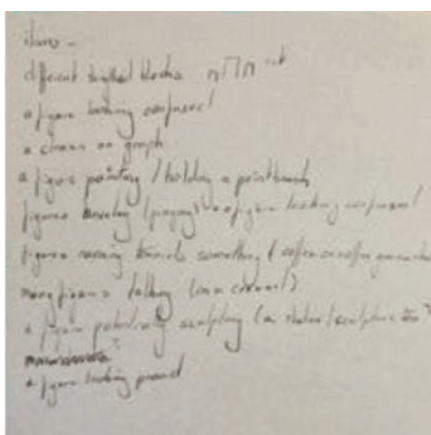 ideas -
different height blocks
a figure looking confused
a crown on graph
a figure pointing / holding a paintbrush
figures kneeling (praying) a figure looking confused
figures running towards something
many figures talking (in a crowd)
a figure potentially sculpting (a statue / sculpture
a figure looking proud